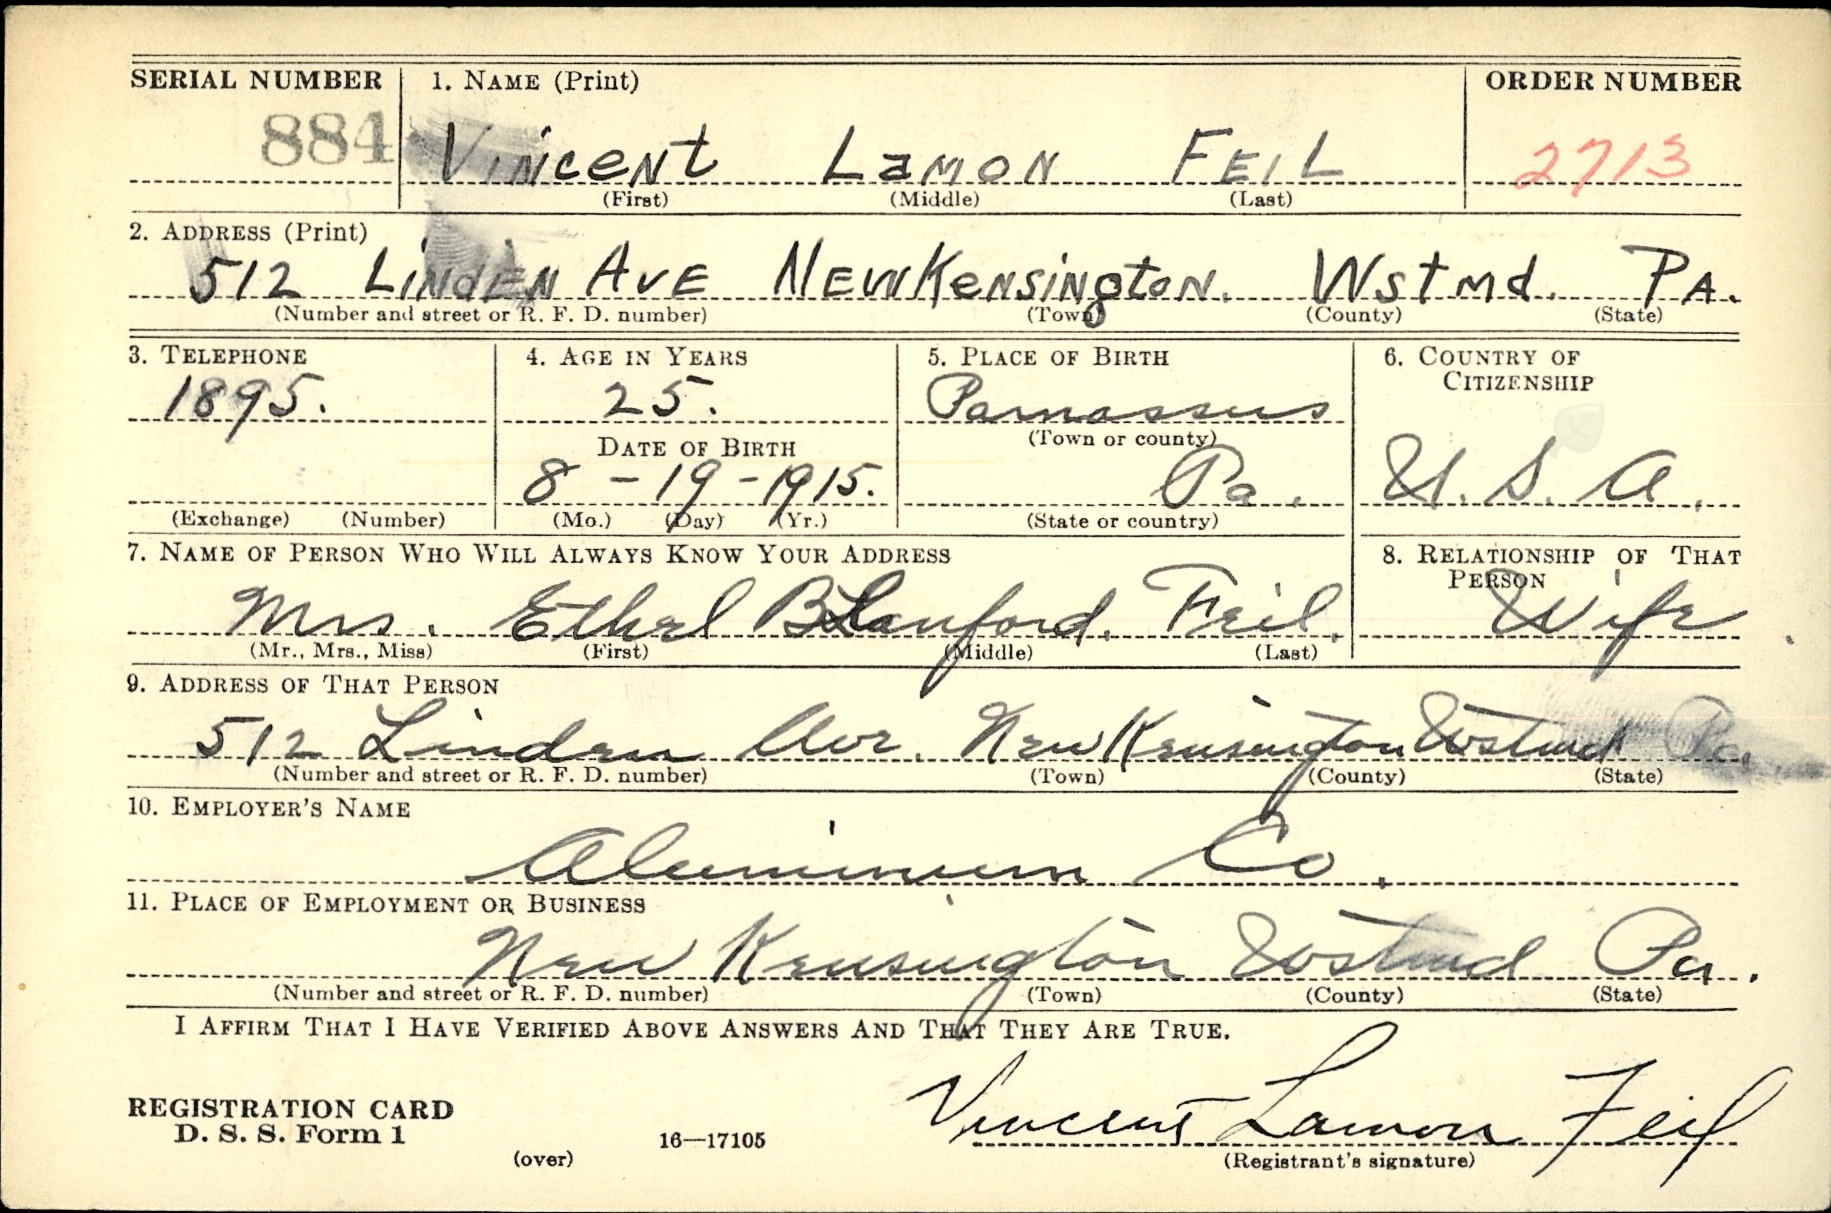 SERIAL NUMBER 1. NAME (Print) ORDER NUMBER
884 Vincent Lamon Feil 2713
(First) (Middle) (Last)
2. ADDRESS (Print)
512 Linden Ave New Kensington. Wstmd. Pa.
(Number and street or R. F. D. number) (Town) (County) (State)
3. TELEPHONE 4. AGE IN YEARS 5. PLACE OF BIRTH 6. COUNTRY OF
CITIZENSHIP
1895. 25. Parnassus
(Town or county)
DATE OF BIRTH
8 - 19 - 1915. Pa. U. S. A.
(Exchange) (Number) (Mo.) (Day) (Yr.) (State or country)
7. NAME OF PERSON WHO WILL ALWAYS KNOW YOUR ADDRESS 8. RELATIONSHIP OF THAT
PERSON
Mrs. Ethel Blanford. Feil. Wife
(Mr., Mrs., Miss) (First) (Middle) (Last)
9. ADDRESS OF THAT PERSON
512 Linden Ave. New Kensington Wstmd Pa.
(Number and street or R. F. D. number) (Town) (County) (State)
10. EMPLOYER'S NAME
Aluminum Co.
11. PLACE OF EMPLOYMENT OR BUSINESS
New Kensington Wstmd Pa.
(Number and street or R. F. D. number) (Town) (County) (State)
I AFFIRM THAT I HAVE VERIFIED ABOVE ANSWERS AND THAT THEY ARE TRUE.
REGISTRATION CARD
D. S. S. Form 1 16—17105 Vincent Lamon Feil
(over) (Registrant's signature)